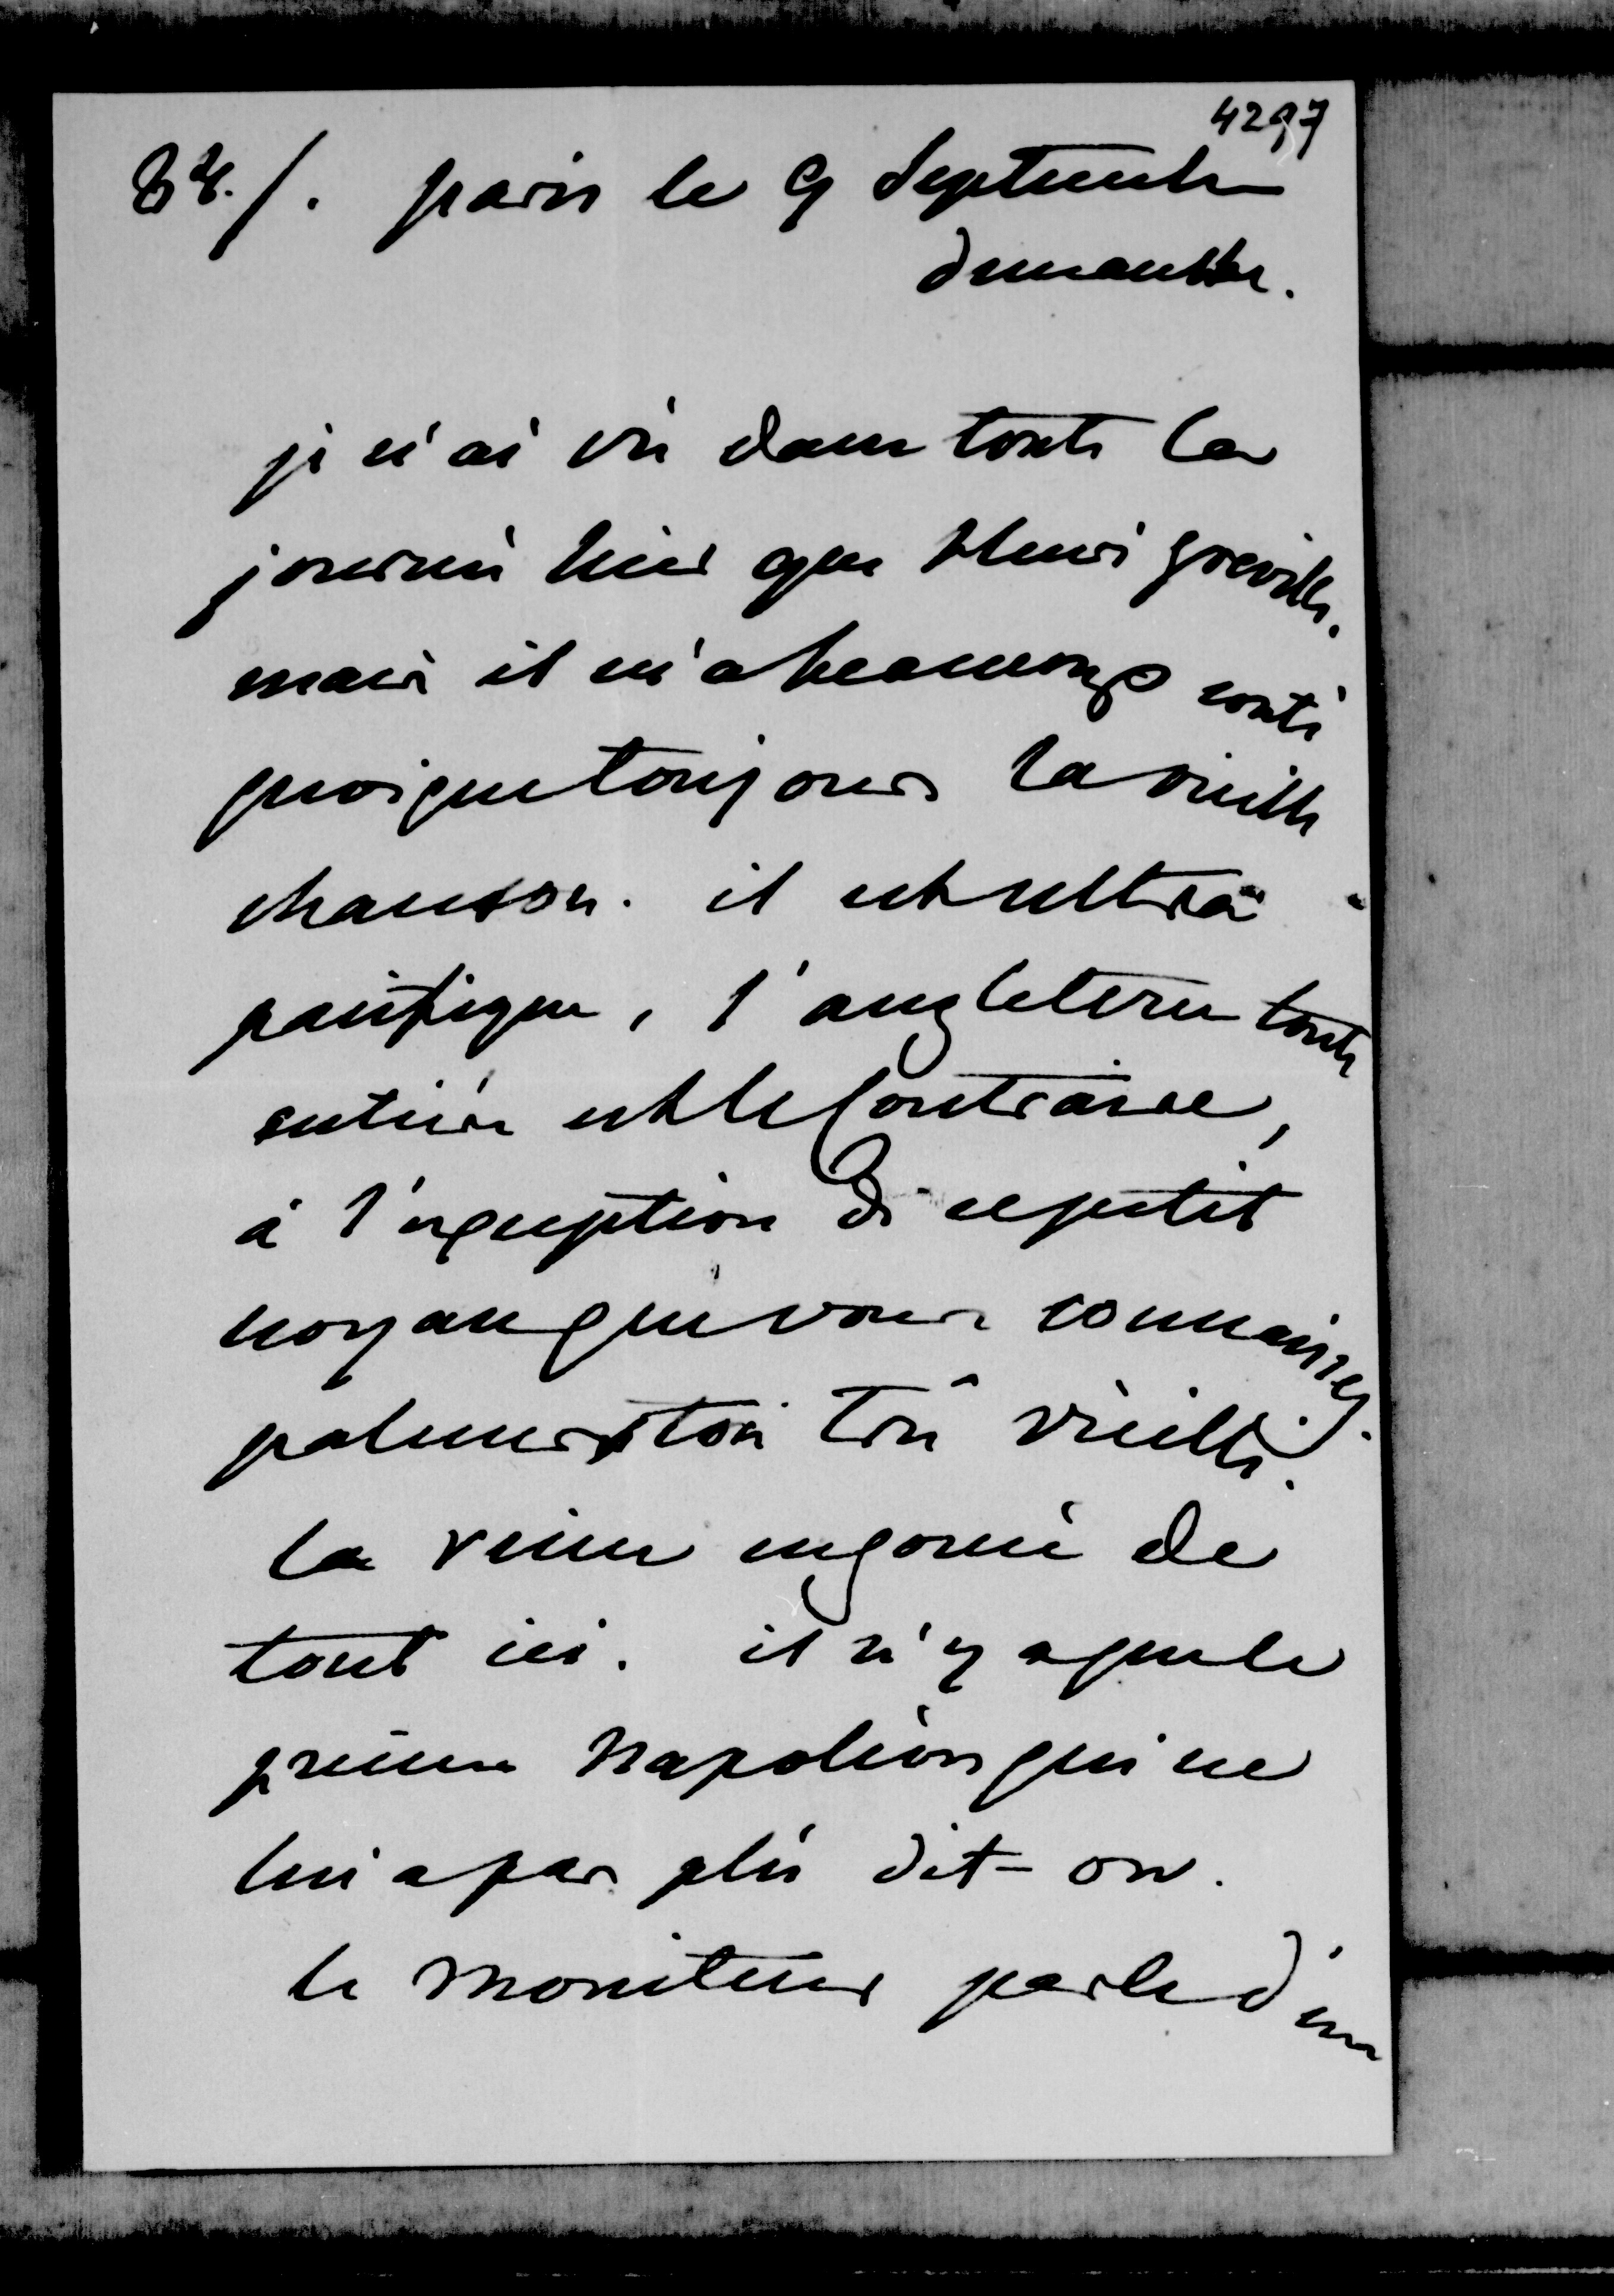 4297
84./. paris le 9 Septembre
dimanche.
je n'ai vû dans toute la
journée hier que Henri Greville.
mais il m'a beaucoup conté
quoique toujours la vieille
chanson. il est ultra
pacifique, l'angleterre toute
entière est le contraire,
à l'exception de ce petit
noyau que vous connaissez.
palmerston très vieilli.
la reine engouée de
tout ici. il n'y a que le
prince Napoléon qui ne
lui a pas plû dit-on.
le Moniteur parle d'un